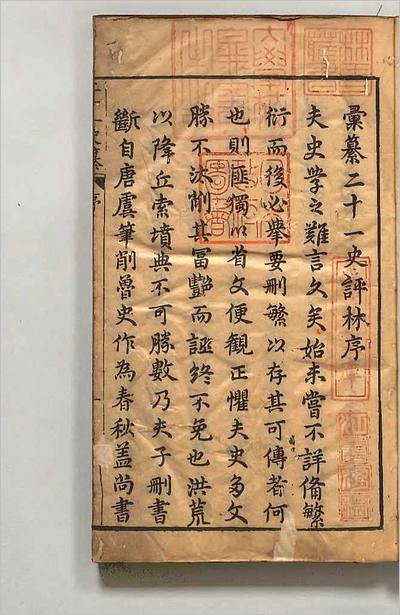 彙纂二十一史評林序
夫史學之難言久矣始未嘗不詳備繁
衍而後必舉要刪繁以存其可傳者何
也則匪獨以省文便觀正懼夫史多文
勝不汰削其冨豔而誣終不免也洪荒
以降丘索墳典不可勝數乃夫子刪書
斷自唐虞筆削魯史作為春秋蓋尚書
序